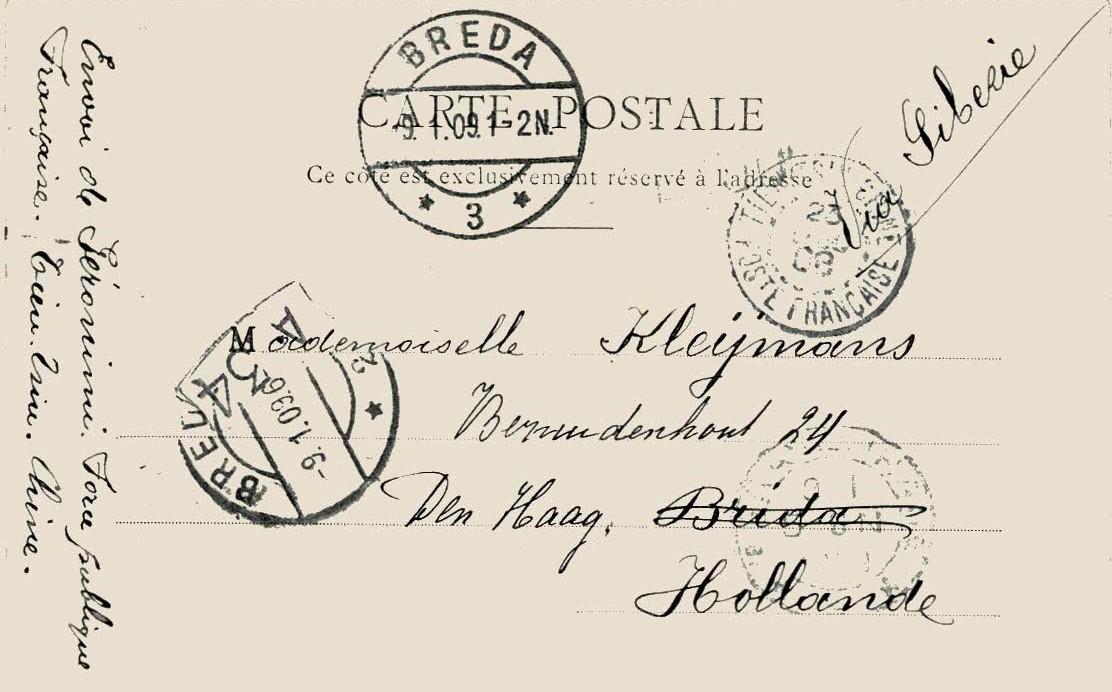 BREDA
9.1.09.1-2N.
3
CARTE POSTALE
Ce côté est exclusivement réservé à l'adresse
Via Siberie
23
08
POSTE FRANÇAISE
Mademoiselle Kleijmans
Bezuidenhout 24
Den Haag. Breda
Hollande
BREDA
-9.1.09.6
2
Envoi de Séromini. Force publique
Française. Tien-Tsin. Chine.